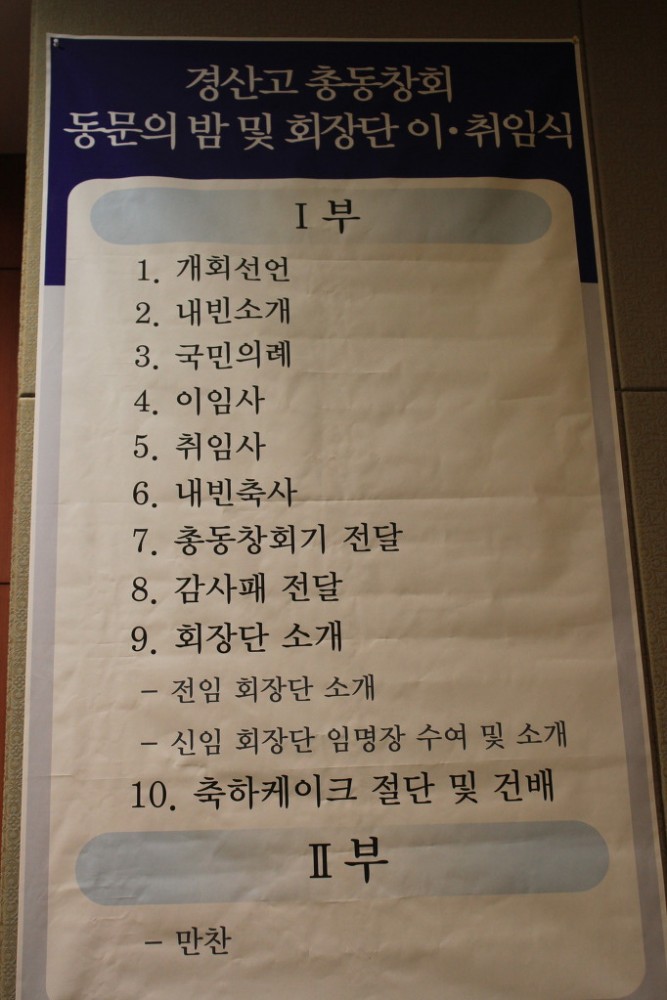 경산고 총동창회
동문의 밤 및 회장단 이·취임식
Ⅰ 부
1. 개회선언
2. 내빈소개
3. 국민의례
4. 이임사
5. 취임사
6. 내빈축사
7. 총동창회기 전달
8. 감사패 전달
9. 회장단 소개
- 전임 회장단 소개
- 신임 회장단 임명장 수여 및 소개
10. 축하케이크 절단 및 건배
Ⅱ 부
- 만찬